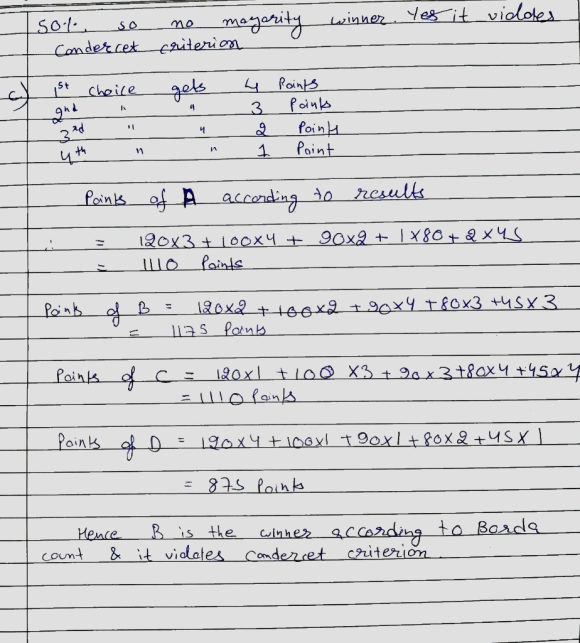 50%. so no magarity winner. Yes it violates
Condercet criterion
c) 1st choice gets 4 Points
2nd " " 3 Points
3rd " " 2 Points
4th " " 1 Point
Points of A according to results
∴ = 120x3 + 100x4 + 90x2 + 1x80 + 2x45
= 1110 Points
Points of B = 120x2 + 100x2 + 90x4 + 80x3 + 45x3
= 1175 Points
Points of C = 120x1 + 100 x3 + 90x3 + 80x4 + 45x4
= 1110 Points
Points of D = 120x4 + 100x1 + 90x1 + 80x2 + 45x1
= 875 Points
Hence B is the winner according to Borda
count & it violates condercet criterion.